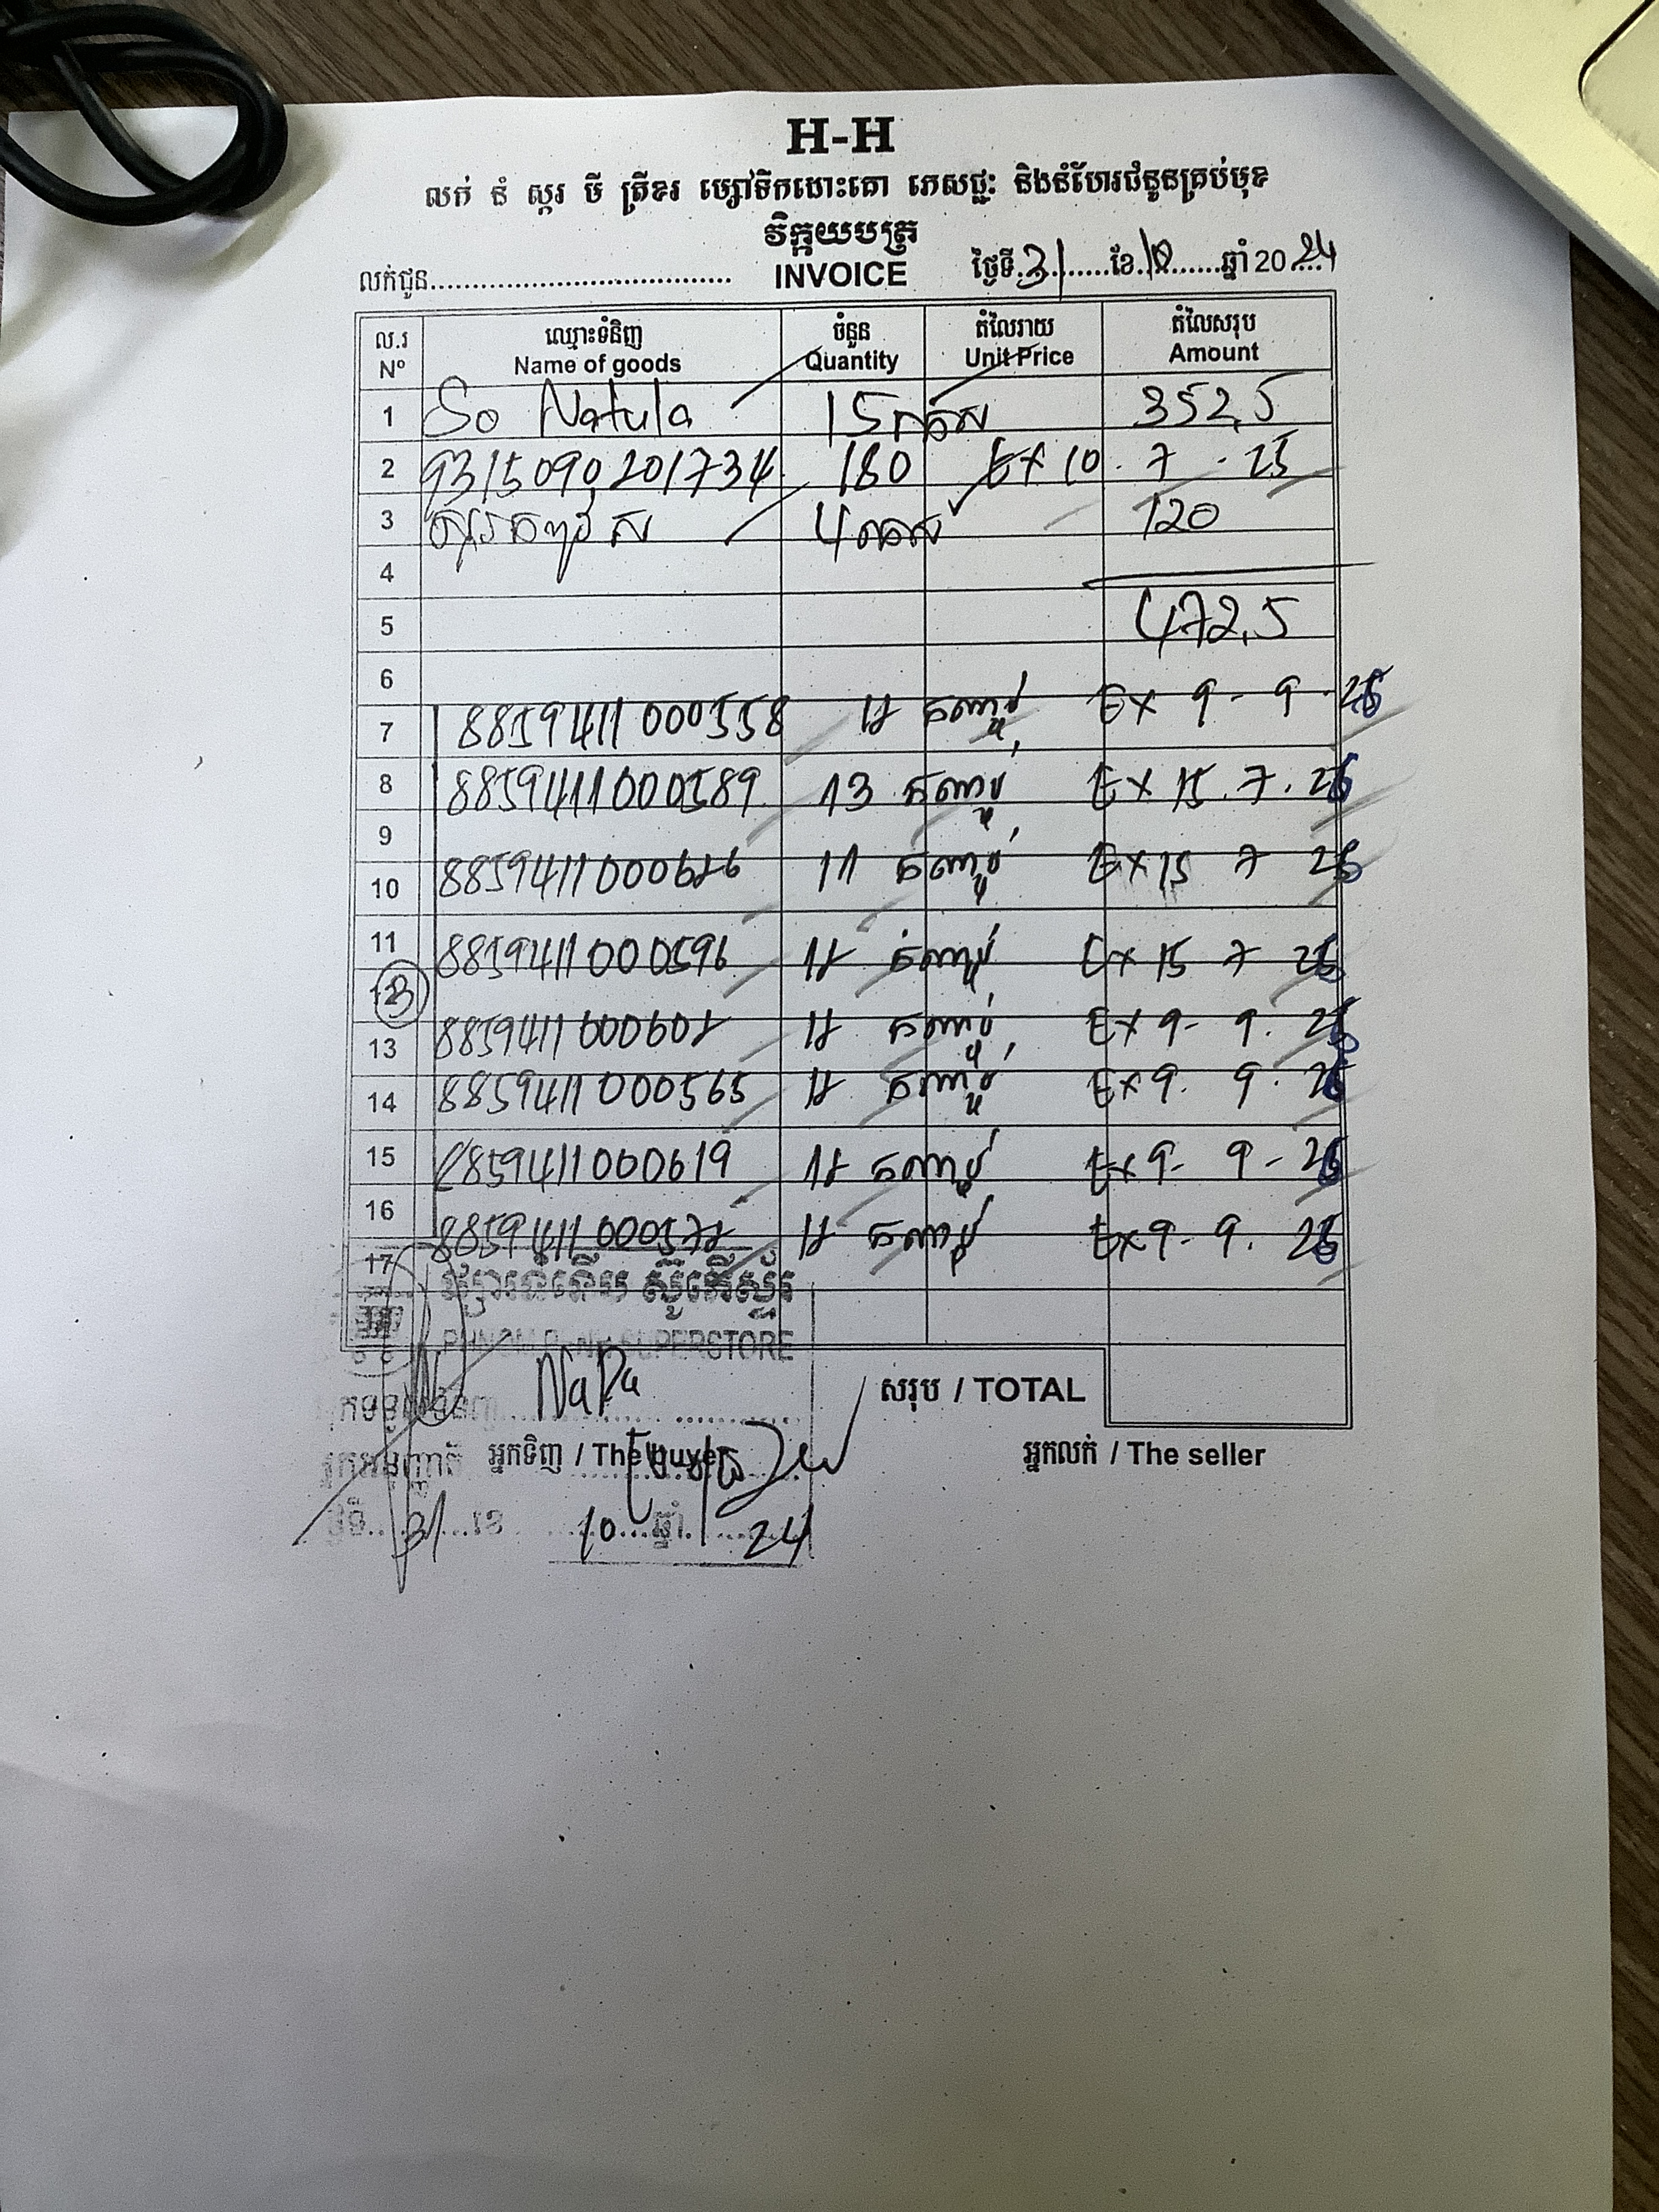 H-H
លក់ នំ ស្ករ មី ត្រីខ ម្សៅទឹកដោះគោ ភេសជ្ជៈ និងនំហែរជំនូនគ្រប់មុខ
វិក្កយបត្រ
លក់ជូន INVOICE ថ្ងៃទី 31 ខែ 10 ឆ្នាំ 2024
ល.រ ឈ្មោះទំនិញ ចំនួន តំលៃរាយ តំលៃសរុប
Nº Name of goods Quantity Unit Price Amount
1 So Natula 15 352,5
2 9315090201734 180 Ex 10 . 7 . 25
3 4 120
4
5 472,5
6
7 8859411000558 12 Ex 9 - 9 - 25
8 8859411000589 13 Ex 15 . 7 . 25
9
10 8859411000626 11 Ex 15 7 25
11 8859411000596 12 Ex 15 7 25
12
13 8859411000602 12 Ex 9 - 9 . 25
14 8859411000565 12 Ex 9 . 9 . 25
15 8859411000619 12 Ex 9 - 9 - 25
16 8859411000572 12 Ex 9 - 9 . 25
17
PHNOM PENH SUPERSTORE
NaPa សរុប / TOTAL
អ្នកទិញ / The buyer អ្នកលក់ / The seller
31 ខែ 10 ឆ្នាំ 24